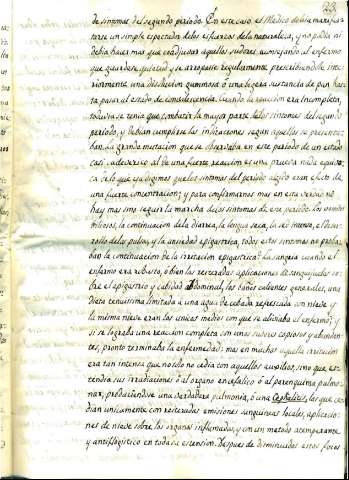 23
de sintomas del segundo período. En este caso el Medico debia manifes-
tarse un simple espectador de los esfuerzos de la naturaleza, y no podia ni
debia hacer mas que coadyuvar aquellos sudores aconsejando al enfermo
que guardase quietud y se arropase regularmente prescribiendole inte-
riormente una disolucion gummosa ó una ligera sustancia de pan has-
ta pasar al estado de convalescencia. Cuando la reaccion era incompleta,
todavia se tenia que combatir la mayor parte de los sintomas del segundo
periodo, y debian cumplirse las indicaciones segun aquellos se presenta-
ban. La grande mutacion que se observaba en este período de un estado
casi cadavérico al de una fuerte reaccion es una prueba nada equivo-
ca de lo que ya digimos que los sintomas del periodo algido eran efecto de
una fuerte concentracion; y para confirmarnos mas en esta verdad no
hay mas sino seguir la marcha de los sintomas de este periodo. Los vomitos
biliosos, la continuacion de la diarrea, la lengua seca, la sed intensa, el desar-
rollo de los pulsos, y la ansiedad epigastrica, todos estos sintomas no proba-
ban la continuacion de la irritacion epigastrica? La sangria cuando el
enfermo era robusto, ó bien las reiteradas aplicaciones de sanguijuelas so-
bre el epigastrio y cabidad abdominal, los baños calientes generales, una
dieta tenuisima limitada á una agua de cebada refrescada con nieve y
la misma nieve eran los unicos medios con que se aliviaba el enfermo;
si se lograba una reaccion completa con unos sudores copiosos y abundan-
tes, pronto terminaba la enfermedad; mas en muchos aquella irritacion
era tan intensa que no solo no cedia con aquellos auxilios, sino que es-
tendia sus irradiaciones ó al organo encefalico ó al parenquima pulmo-
nar, produciendose una verdadera pulmonia, ó una Cephalitis, las que ce-
dian unicamente con reiteradas emisiones sanguineas locales, aplicacio-
nes de nieve sobre los organos inflamados, y con un metodo atemperante
y antiflogistico en toda su estension. Despues de disminuidos estos focos